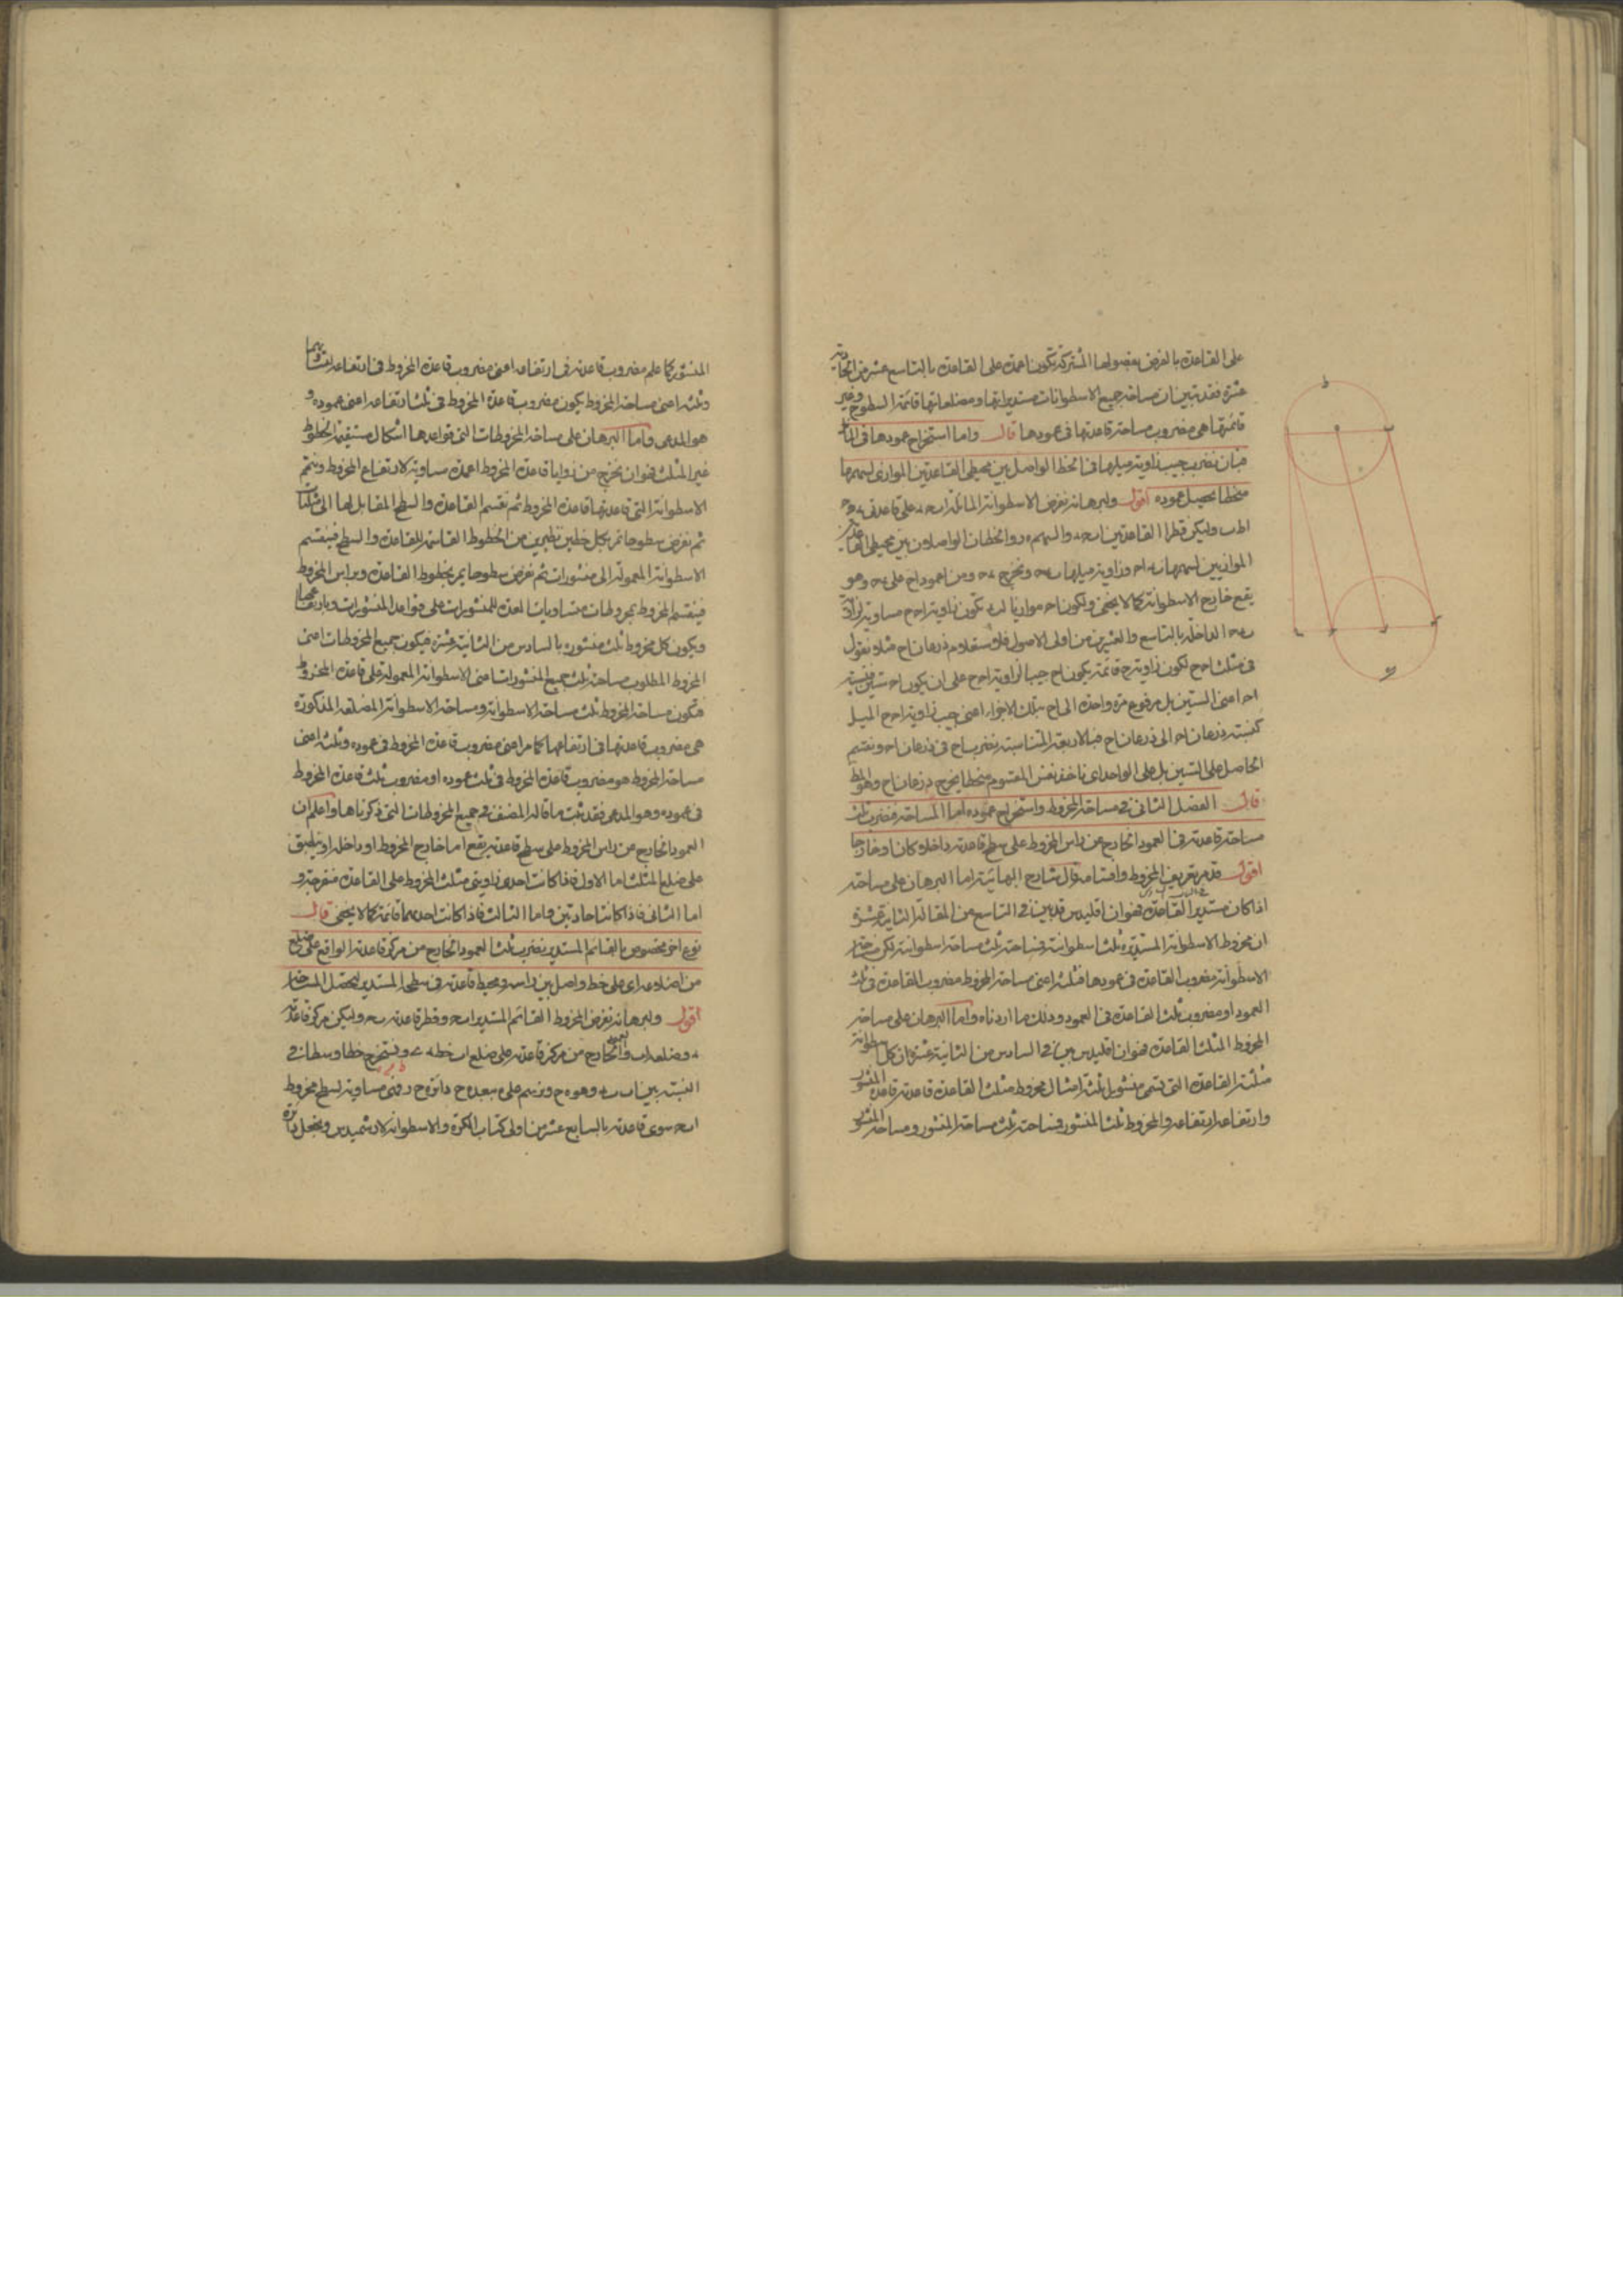 على القاعدة بالفرض بفصولها المشتركة تكون اعمدة على القاعدة بالتاسع عشر من الحادية
عشرة فقد تبين ان مساحة جميع الاسطوانات مستديراتها ومضلعاتها قائمة السطوح وغير
قائمتها هى مضروب مساحة قاعدتها فى عمودها قال واما استخراج عمودها فى المائلة
فبان نضرب جيب زاوية ميلها فى الخط الواصل بين محيطى القاعدتين الموازى لسهمها
منحطا يحصل عموده اقول وبرهانه نفرض الاسطوانة المائلة على قاعدتى
وليكن قطرا القاعدتين والسهم والخطان الواصلان بين محيطى القاعدتين
الموازيين لسهمها وزاوية ميلها ونخرج ومن ا عمود اح على وهو
يقع خارج الاسطوانة كما لا يخفى ولكون موازيا تكون زاوية مساوية لزاوية
الداخلة بالتاسع والعشرين من اولى الاصول فلاستعلام ذرعان اح مثلا نقول
فى مثلث لكون زاوية ح قائمة يكون اح جيبا لزاوية على ان يكون ستين فنسبة
اعنى الستين بل مرفوع مرة واحدة الى اح بتلك الاجزاء اعنى جيب زاوية الميل
كنسبة ذرعان الى ذرعان اح فبالاربعة المتناسبة نضرب اح فى ذرعان ونقسم
الحاصل على الستين بل على الواحد اى ناخذ نفس المقسوم منحطا يخرج ذرعان اح وهو المط
قال الفصل الثانى فى مساحة المخروط واستخراج عموده اما المساحة فنضرب ثلث
مساحة قاعدته فى العمود الخارج عن راس المخروط على سطح قاعدته داخلا كان او خارجا
اقول قد مر تعريف المخروط واقسامه قال شارح البهائية اما البرهان على مساحته
اذا كان مستدير القاعدة فهو ان اقليدس قد بين فى التاسع من المقالة الثانية عشرة
ان مخروط الاسطوانة المستديرة ثلث اسطوانته فمساحته ثلث مساحة اسطوانته لكن مساحة
الاسطوانة مضروب القاعدة فى عمودها فثلثه اعنى مساحة المخروط مضروب القاعدة فى ثلث
العمود او مضروب ثلث القاعدة فى العمود وذلك ما اردناه واما البرهان على مساحة
المخروط المثلث القاعدة فهو ان اقليدس بين فى السادس من الثانية عشرة ان كل اسطوانة
مثلثة القاعدة التى تسمى منشورا ثلثة امثال مخروط مثلث القاعدة قاعدته قاعدة المنشور
وارتفاعه ارتفاعه والمخروط ثلث المنشور فمساحته ثلث مساحة المنشور ومساحة المنشور
المنشور كما علم مضروب قاعدته فى ارتفاعه اعنى مضروب قاعدة المخروط فى ارتفاعه
وثلثه اعنى مساحة المخروط يكون مضروب قاعدة المخروط فى ثلث ارتفاعه اعنى عموده و
هو المدعى واما البرهان على مساحة المخروطات التى قواعدها اشكال مستقيمة الخطوط
غير المثلث فهو ان نخرج من زوايا قاعدة المخروط اعمدة مساوية لارتفاع المخروط ونتمم
الاسطوانة التى قاعدتها قاعدة المخروط ثم نقسم القاعدة والسطح المقابل لها الى مثلثات
ثم نفرض سطوحا تمر بكل خطين نظيرين من الخطوط القاسمة للقاعدة والسطح فينقسم
الاسطوانة المعمولة الى منشورات ثم نفرض سطوحا يمر بخطوط القاعدة وبراس المخروط
فينقسم المخروط بمخروطات متساويات لعدة المنشورات على قواعد المنشورات وبارتفاعها
ويكون كل مخروط ثلث منشوره بالسادس من الثانية عشرة فيكون جميع المخروطات اعنى
المخروط المطلوب مساحته ثلث جميع المنشورات اعنى الاسطوانة المعمولة على قاعدة المخروط
فتكون مساحة المخروط ثلث مساحة الاسطوانة ومساحة الاسطوانة المضلعة المذكورة
هى مضروب قاعدتها فى ارتفاعها كما مر اعنى مضروب قاعدة المخروط فى عموده وثلثه اعنى
مساحة المخروط هو مضروب قاعدة المخروط فى ثلث عموده او مضروب ثلث قاعدة المخروط
فى عموده وهو المدعى فقد ثبت ما قاله المصنف فى جميع المخروطات التى ذكرناها واعلم ان
العمود الخارج عن راس المخروط على سطح قاعدته يقع اما خارج المخروط او داخله او ينطبق
على ضلع المثلث اما الاول فاذا كانت احدى زاويتى مثلث المخروط على القاعدة منفرجة و
اما الثانى فاذا كانتا حادتين واما الثالث فاذا كانت احديهما قائمة كما لا يخفى قال
نوع اخر مخصوص بالقائم المستدير نضرب ثلث العمود الخارج من مركز قاعدته الواقع على ضلع
من اضلاعه اى على خط واصل بين راسه ومحيط قاعدته فى سطحه المستدير ليحصل المساحة
اقول وبرهانه نفرض المخروط القائم المستدير وقطر قاعدته وليكن مركز قاعدته
وضلعه اب والعمود الخارج من مركز قاعدته على ضلع اب خط ونستخرج خطا وسطا فى
النسبة بين وهو ونرسم على ببعد دائرة فهى مساوية لسطح مخروط
سوى قاعدته بالسابع عشر من اولى كتاب الكرة والاسطوانة لارشميدس ونجعل دائرة